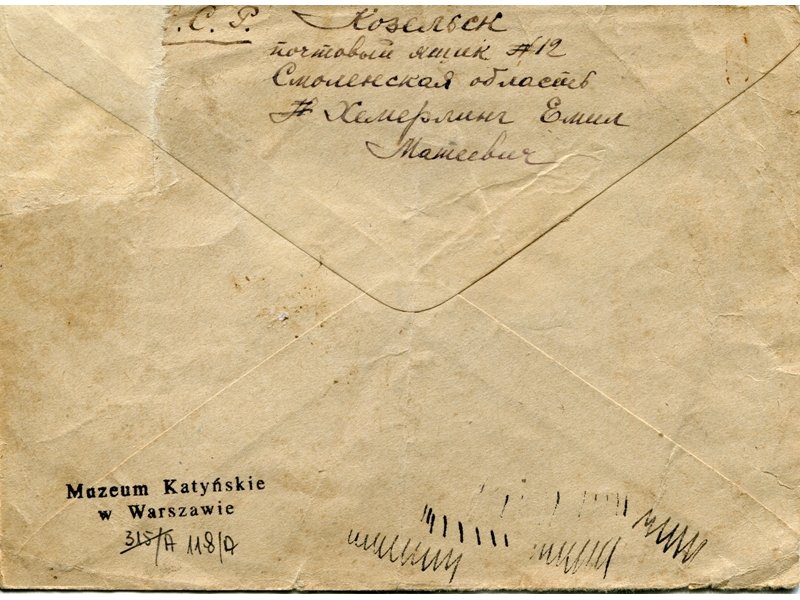 .С.С.Р. Козельск
почтовый ящик №12
Смоленская область
Хемерлинг Емил
Матеевич
Muzeum Katyńskie
w Warszawie
315/A 118/A